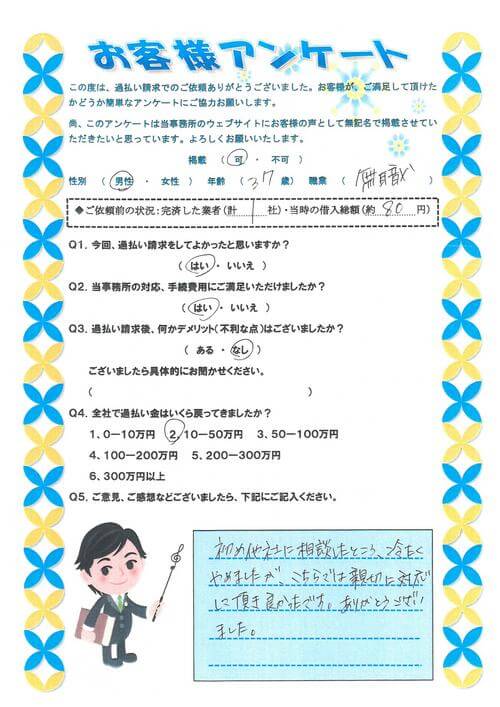 お客様アンケート
この度は、過払い請求でのご依頼ありがとうございました。お客様が、ご満足して頂けた
かどうか簡単なアンケートにご協力お願いします。
尚、このアンケートは当事務所のウェブサイトにお客様の声として無記名で掲載させてい
ただきたいと思っています。よろしくお願いいたします。
掲載 ( 可 ・ 不可 )
性別 ( 男性 ・ 女性 ) 年齢 ( 37 歳) 職業 ( 無職 )
◆ご依頼前の状況:完済した業者(計 1 社)・当時の借入総額(約 80 円)
Q1. 今回、過払い請求をしてよかったと思いますか?
( はい ・ いいえ )
Q2. 当事務所の対応、手続費用にご満足いただけましたか?
( はい ・ いいえ )
Q3. 過払い請求後、何かデメリット(不利な点)はございましたか?
( ある ・ なし )
ございましたら具体的にお聞かせください。
( )
Q4. 全社で過払い金はいくら戻ってきましたか?
1、0-10万円 2、10-50万円 3、50-100万円
4、100-200万円 5、200-300万円
6、300万円以上
Q5. ご意見、ご感想などございましたら、下記にご記入ください。
初め他社に相談したところ、冷たく
やめましたが、こちらでは親切に対応
して頂き良かったです。ありがとうござい
ました。